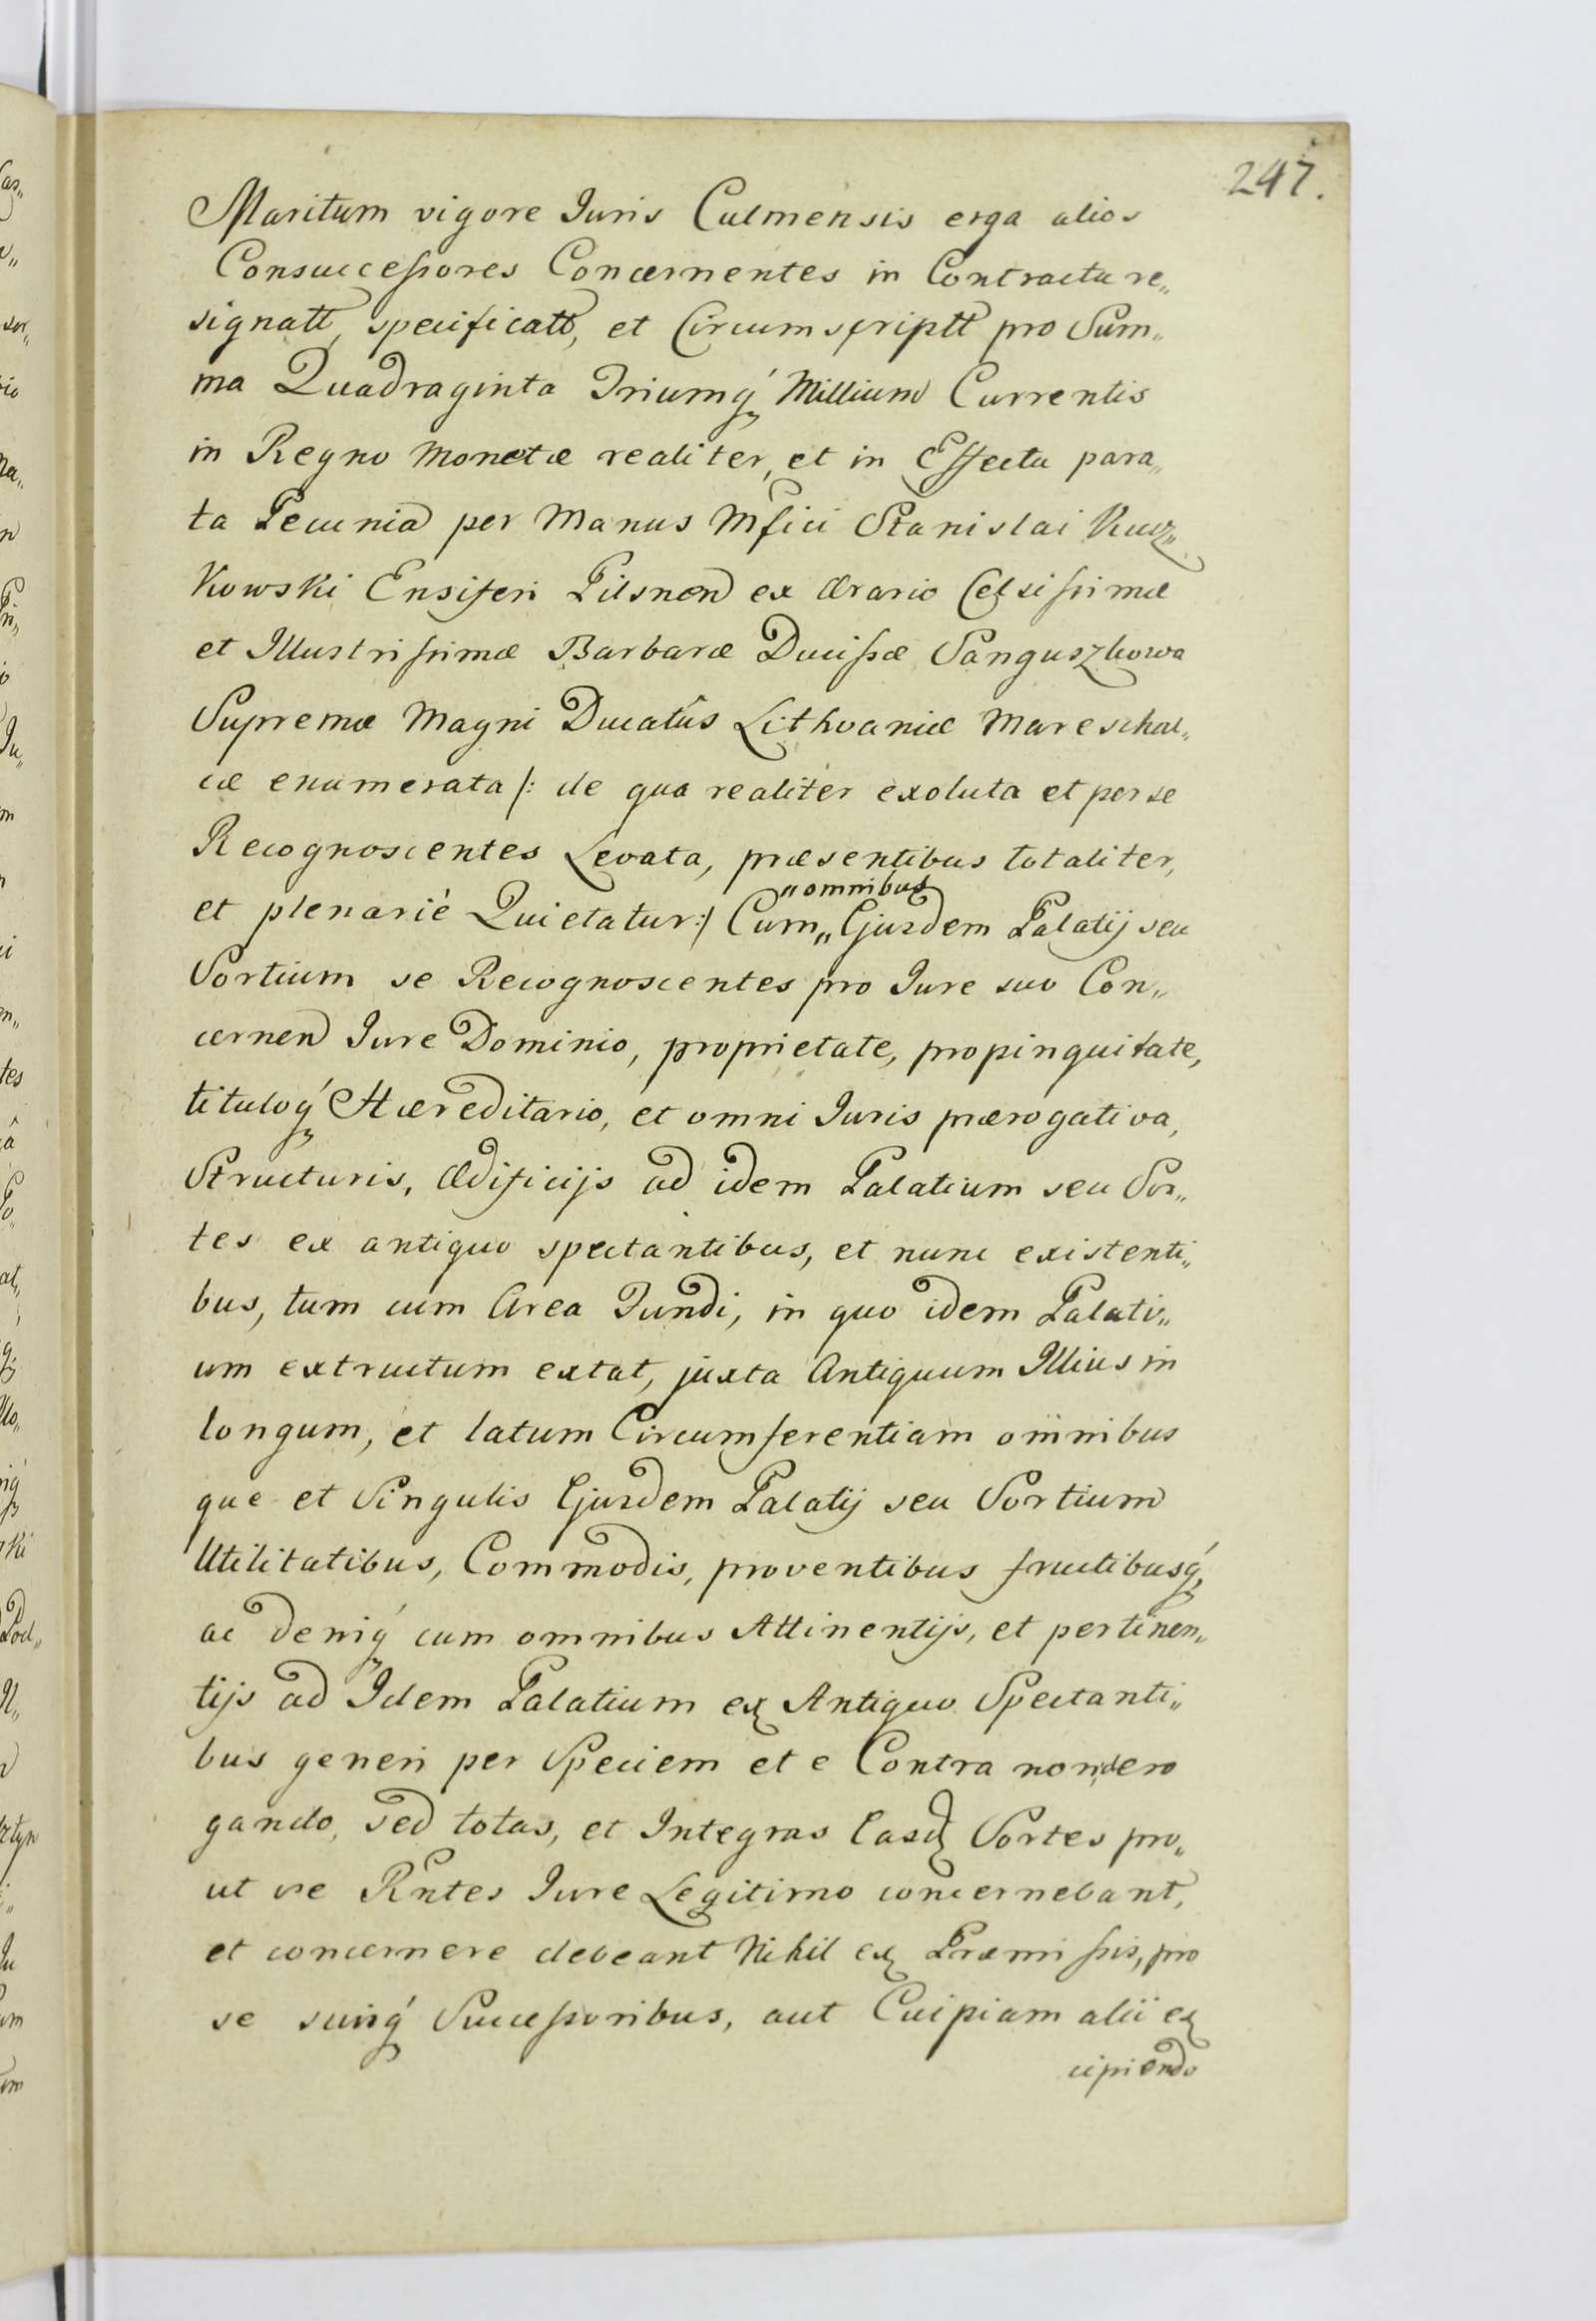 247.
Maritum vigore Juris Culmensis erga alios
Consuccessores Concernentes in Contractu re„
signatt, specificatt, et Circumscriptt pro Sum„
ma Quadraginta Triumq́ Millium Currentis
in Regno Monetæ realiter, et in Effectu para„
ta Pecunia per Manus Mfici Stanislai Kucz„
Kowski Ensiferi Pilsnen ex Ærario Celsissimæ
et Illustrissimæ Barbaræ Ducissæ Sanguszkowa
Supremæ Magni Ducatûs Lithvaniæ Mareschal„
cæ enumerata /: de qua realiter exoluta et per se
Recognoscentes Levata, præsentibus totaliter,
et plenarié Quietatur:/ Cum „omnibus Ejusdem Palatij seu
Sortium se Recognoscentes pro Jure suo Con„
cernen Jure Dominio, proprietate, propinquitate,
tituloq́ Hæreditario, et omni Juris prærogativa,
Structuris, Ædificijs ad idem Palatium seu Sor„
tes ex antiquo spectantibus, et nunc existenti„
bus, tum cum Area Fundi, in quo idem Palati„
um extructum extat, juxta Antiquum Illius in
longum, et latum Circumferentiam omnibus
que et Singulis Ejusdem Palatij seu Sortium
Utilitatibus, Commodis, proventibus fructibusq́,
ac deniq́ cum omnibus Attinentijs, et pertinen„
tijs ad Idem Palatium ex Antiquo Spectanti„
bus generi per Speciem et e Contra non dero
gando, sed totas, et Integras Easd Sortes pro„
ut se Rntes Jure Legitimo concernebant,
et concernere debeant Nihil ex Præmissis, pro
se suisq́ Successoribus, aut Cuipiam alii ex
cipiendo